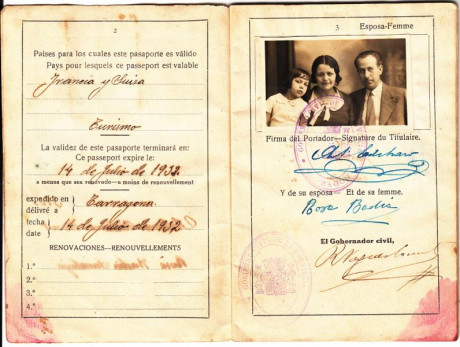 2
Países para los cuales este pasaporte es válido
Pays pour lesquels ce passeport est valable
Francia y Suiza
Turismo
La validez de este pasaporte terminará en:
Ce passeport expire le:
14 de Julio de 1933.
a menos que sea renovado—a moins de renouvellement
expedido en
délivré a
Tarragona
fecha
date
14 de Julio de 1932
RENOVACIONES—RENOUVELLEMENTS
1.º
2.º
3.º
4.º
3
Esposa-Femme
Firma del Portador—Signature du Titulaire.
Y de su esposa Et de sa femme.
Rosa
El Gobernador civil,